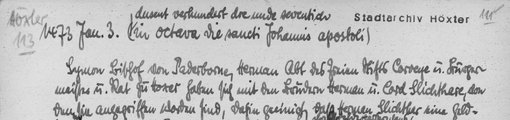 Höxter
113
dusent verhundert dre unde seventich
Stadtarchiv Höxter
111
1473 Jan. 3. (in octava die sancti Johannis apostoli)
Symon Bischof von Paderborne, Herman Abt des freien Stifts Corveye u. Bürger-
meister u. Rat zu Hoxer haben sich mit den Brüdern Herman u. Cord Slichthare, von
den sie angegriffen worden sind, dahin geeinigt, dass Herman Slichthar eine Geld-